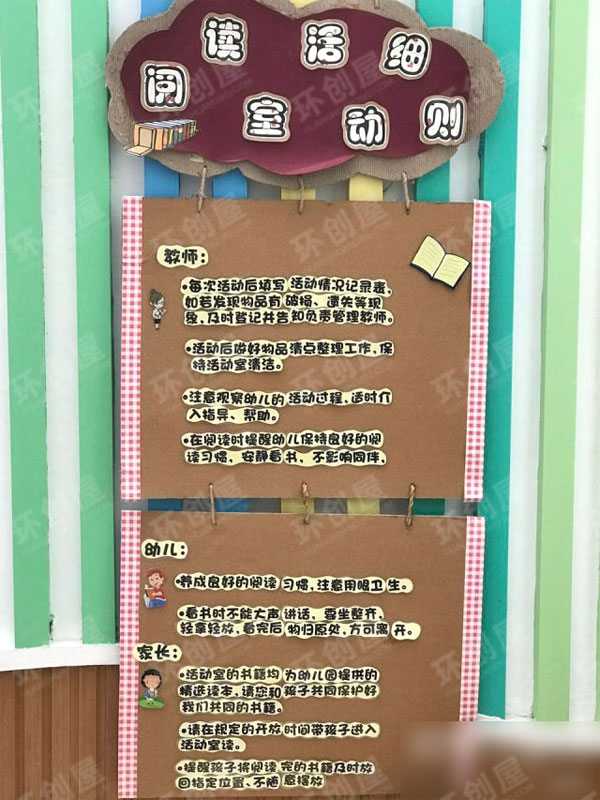 阅读室活动细则
教师：
•每次活动后填写 活动情况记录表，
如若发现物品有 破损、遗失等现
象，及时登记并告知负责管理教师。
•活动后做好物品清点整理工作，保
持活动室清洁。
•注意观察幼儿的 活动过程，适时介
入指导、帮助。
•在阅读时提醒幼儿保持良好的阅
读习惯，安静看书、不影响同伴，
幼儿：
•养成良好的阅读 习惯，注意用眼卫 生。
•看书时不能大声 讲话，要坐整齐，
轻拿轻放，看完后 物归原处，方可离 开。
家长：
•活动室的书籍均 为幼儿园提供的
精选读本，请您和 孩子共同保护好
我们共同的书籍。
•请在规定的开放 时间带孩子进入
活动室读。
•提醒孩子将阅读 完的书籍及时放
回指定位置、不随 意摆放
环创屋